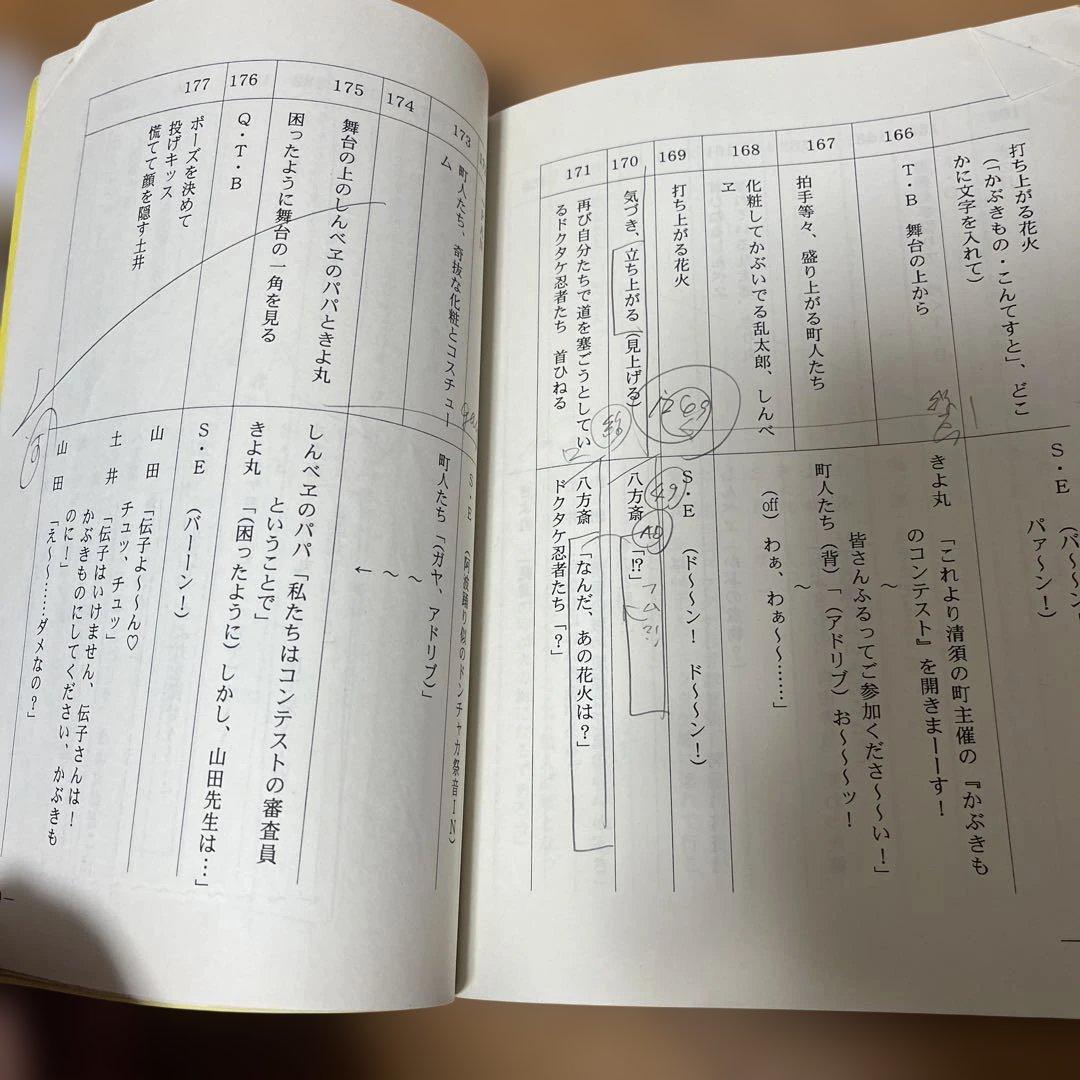 打ち上がる花火
(「かぶきもの・こんてすと」、どこ
かに文字を入れて)
S・E
(パ〜〜〜ン!
パァ〜ン!)
166
T・B　舞台の上から
きよ丸
「これより清須の町主催の『かぶきも
のコンテスト』を開きまーーす!
〜
皆さんふるってご参加くださ〜〜い!」
167
拍手等々、盛り上がる町人たち
町人たち(背)「(アドリブ)お〜〜〜ッ!
〜
168
化粧してかぶいでる乱太郎、しんべ
ヱ
(off)　わぁ、わぁ〜〜……」
169
打ち上がる花火
S・E　(ド〜〜ン!　ド〜〜ン!)
170
気づき、立ち上がる(見上げる)
八方斎「!?」
AD
171
再び自分たちで道を塞ごうとしてい
るドクタケ忍者たち　首ひねる
八方斎「なんだ、あの花火は?」
ドクタケ忍者たち「?」
173
町人たち、奇抜な化粧とコスチュー
ム
S・E　(阿波踊り似のドンチャカ祭音IN)
町人たち「(ガヤ、アドリブ)」
174
〜
〜
←
175
舞台の上のしんべヱのパパときよ丸
困ったように舞台の一角を見る
しんべヱのパパ「私たちはコンテストの審査員
ということで」
きよ丸　「(困ったように)しかし、山田先生は…」
176
Q・T・B
S・E　(バーーン!)
177
ポーズを決めて
投げキッス
慌てて顔を隠す土井
山田　「伝子よ〜〜ん♡
チュッ、チュッ」
土井　「伝子はいけません、伝子さんは!
かぶきものにしてください、かぶきも
のに!」
山田　「え〜〜……ダメなの?」